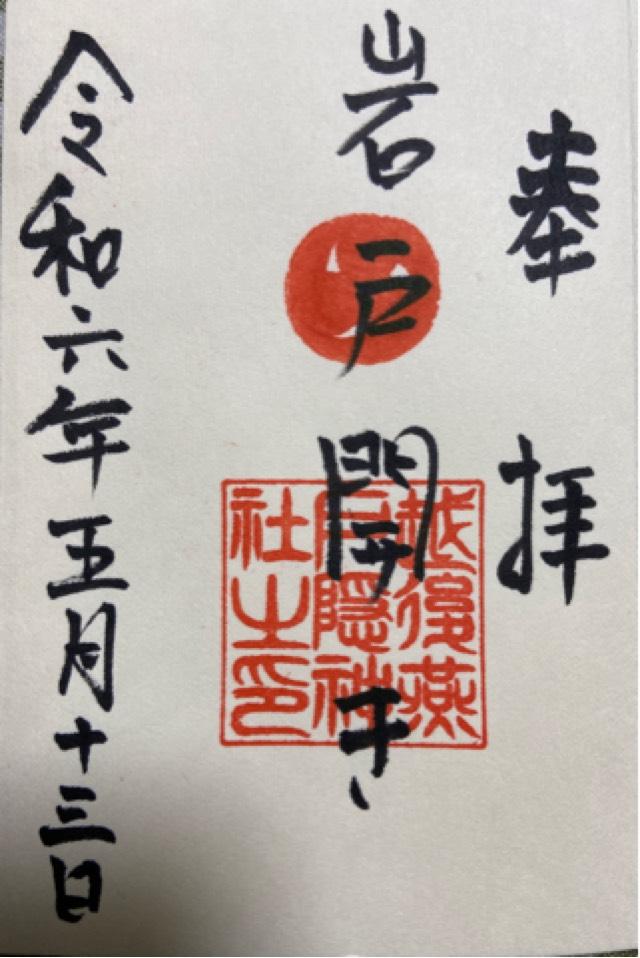 奉拝
岩戸開き
越後燕
戸隠神
社之印
令和六年五月十三日